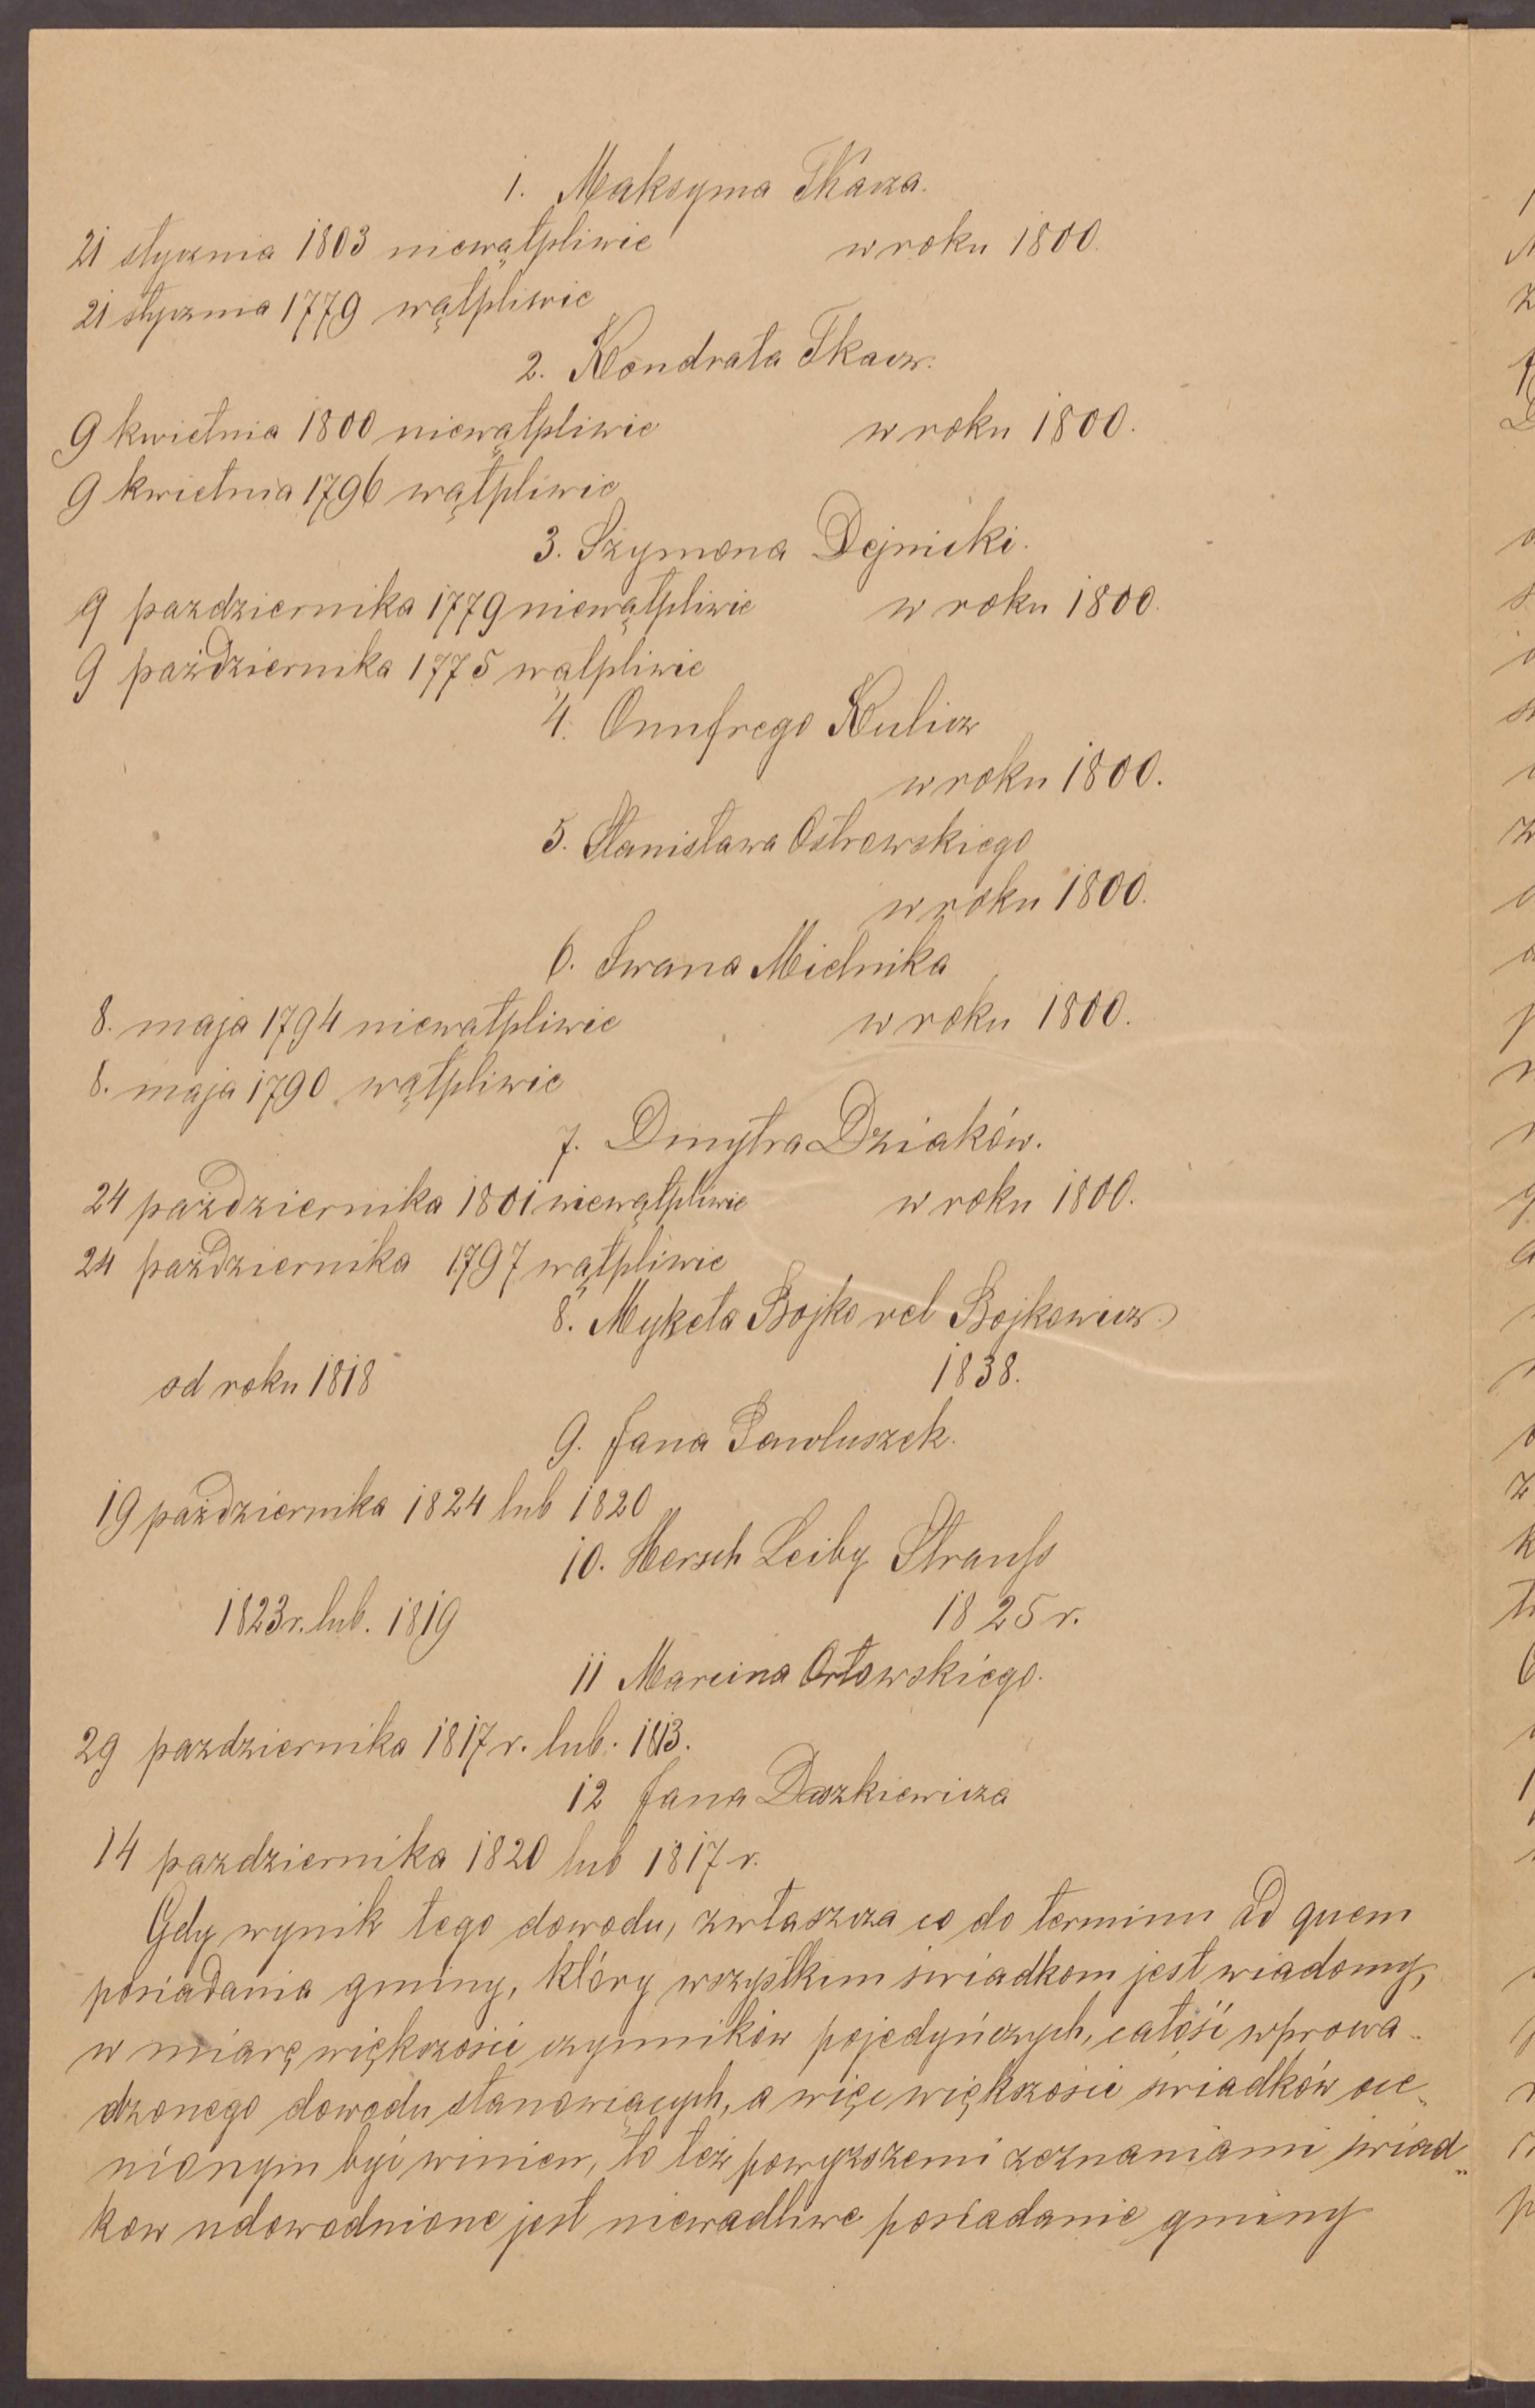 1. Maksyma Tkacza.
21 stycznia 1803 niewątpliwie w roku 1800.
21 stycznia 1779 wątpliwie
2. Kondrata Tkacz.
9 kwietnia 1800 niewątpliwie w roku 1800.
9 kwietnia 1796 wątpliwie
3. Szymona Dejnicki.
9 pazdziernika 1779 niewątpliwie w roku 1800.
9 październik​a 1775 wątpliwie
4. Onufrego Kulicz
w roku 1800.
5. Stanisława Ostrowskiego
w roku 1800.
6. Iwana Mielnika
8. maja 1794 niewątpliwie w roku 1800.
8. maja 1790 wątpliwie
7. Dmytra Dziaków.
24 października 1801 niewątpliwie w roku 1800.
24 października 1797 wątpliwie
8. Myketa Bojko vel Bojkowicz
od roku 1818 1838.
9. Jana Pawluszek.
19 października 1824 lub 1820
10. Hersch Leiby Strauss
1823 r. lub. 1819 1825 r.
11 Marcina Orłowskiego.
29 pazdziernika 1817 r. lub. 1813.
12 Jana Daszkiewicza
14 pazdziernika 1820 lub 1817 r.
Gdy wynik tego dowodu, zwłaszcza co do terminu ad quem
posiadania gminy, który wszystkim świadkom jest wiadomy,
w miarę większości czynników pojedyńczych, całość wprowa-
dzonego dowodu stanowiących, a więc większości świadków oce-
nionym być winien, to też powyższemi zeznaniami świad-
kow udowodnione jest niewadliwe posiadanie gminy